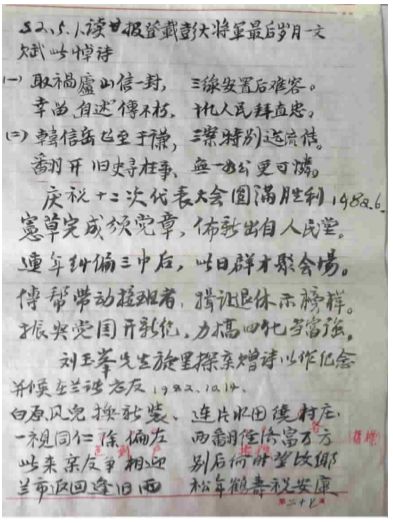 82.5.1.读甘报登载彭大将军最后岁月一文
赋此悼诗
(一) 取祸庐山信一封，三线安置后难容。
幸留自述传不朽，十亿人民拜直忠。
(二) 韩信岳飞至于谦，三案特别
翻开旧史寻枉事，无一如公更可怜。
庆祝十二次代表大会圆满胜利 1982.6.
宪草完成颁党章，佈新出自人民堂。
连年纠偏三中后，此日群才聚会场。
傳帮带动接班者，揖让退休示榜样。
振兴党国开新纪，力搞四化当富强。
刘玉峯先生旋里探亲赠诗以作纪念
并候在兰诸方友 1982.10.14.
白原风光换新装、连片水田绕村庄
一视同仁除偏左 两翻经济富万方
此来亲友争相迎 别后何时望故乡
兰市返回逢旧雨 松年鹤寿祝安康
第二十七页